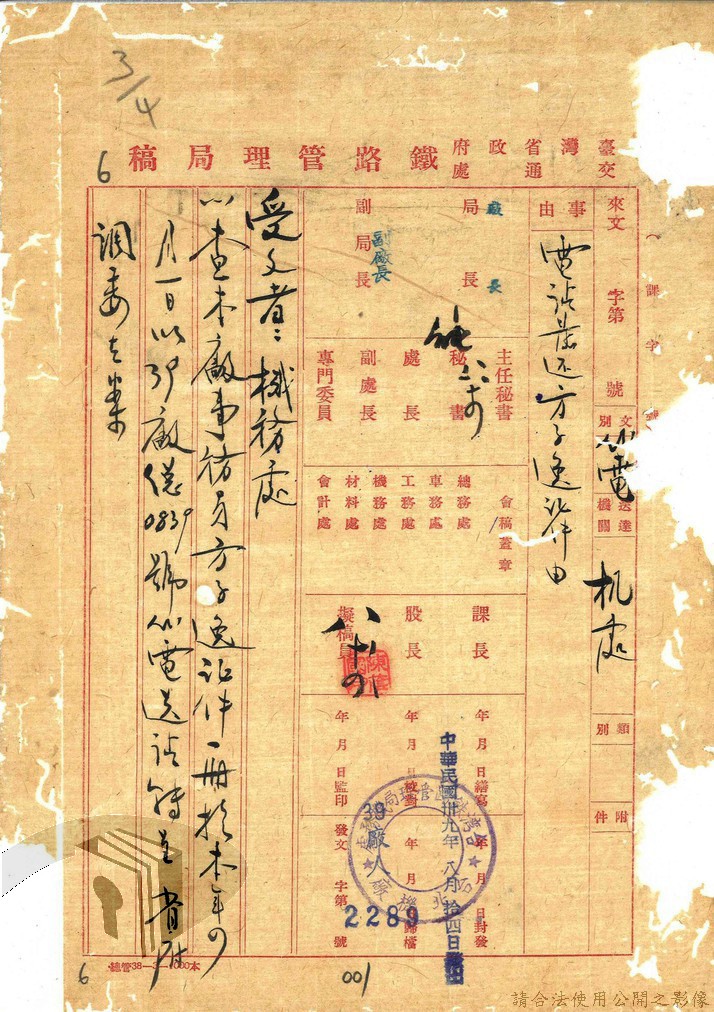 3/4
6
臺灣省政府
交通處
鐵路管理局稿
課字號
來文字第號
文別 代電
送達機關 机處
類別
附件
事由
電請發還方子逸證件由
局長
廠長
副局長
副廠長
主任秘書
秘書
處長
副處長
專門委員
會稿蓋章
總務處
車務處
工務處
機務處
材料處
會計處
課長
股長
擬稿員
年月日繕寫
年月日校對
年月日監印
年月日封發
年月日歸檔
發文字第號
中華民國卅九年八月拾四日發出
39廠人
2289
受文者：機務處
一、查本廠事務員方子逸證件一冊於本年
月一日以39廠總0839號代電送請轉呈省府
總管38-3-1000本
6
001
請合法使用公開之影像